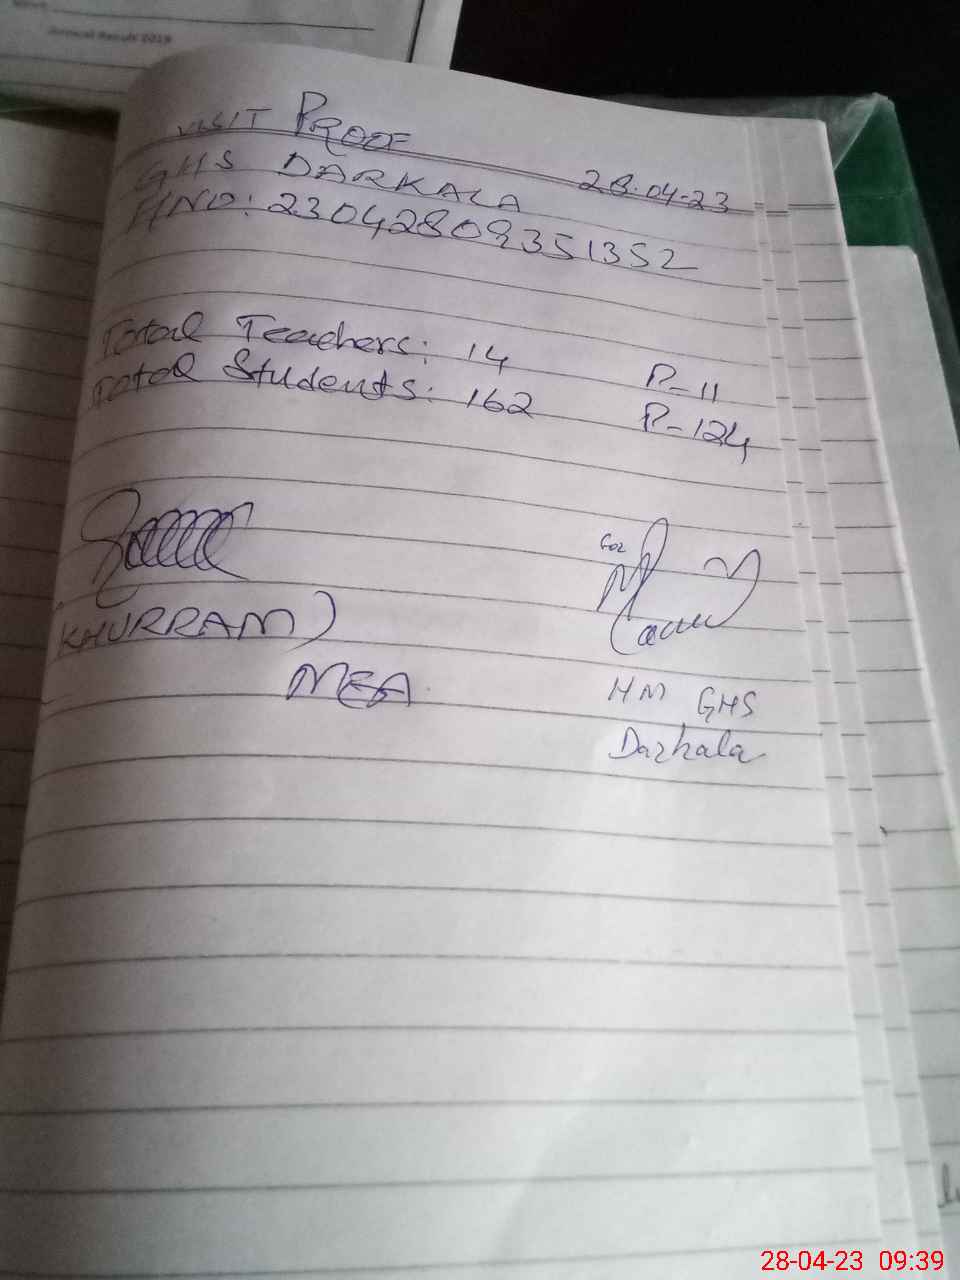 Annual Result 2019
VISIT PROOF
GHS DARKALA 28.04-23
HNO: 23042809351352
Total Teachers: 14 P-11
Total Students: 162 P-124
for
KHURRAM)
MEA.
HM GHS
Darkala
28-04-23 09:39